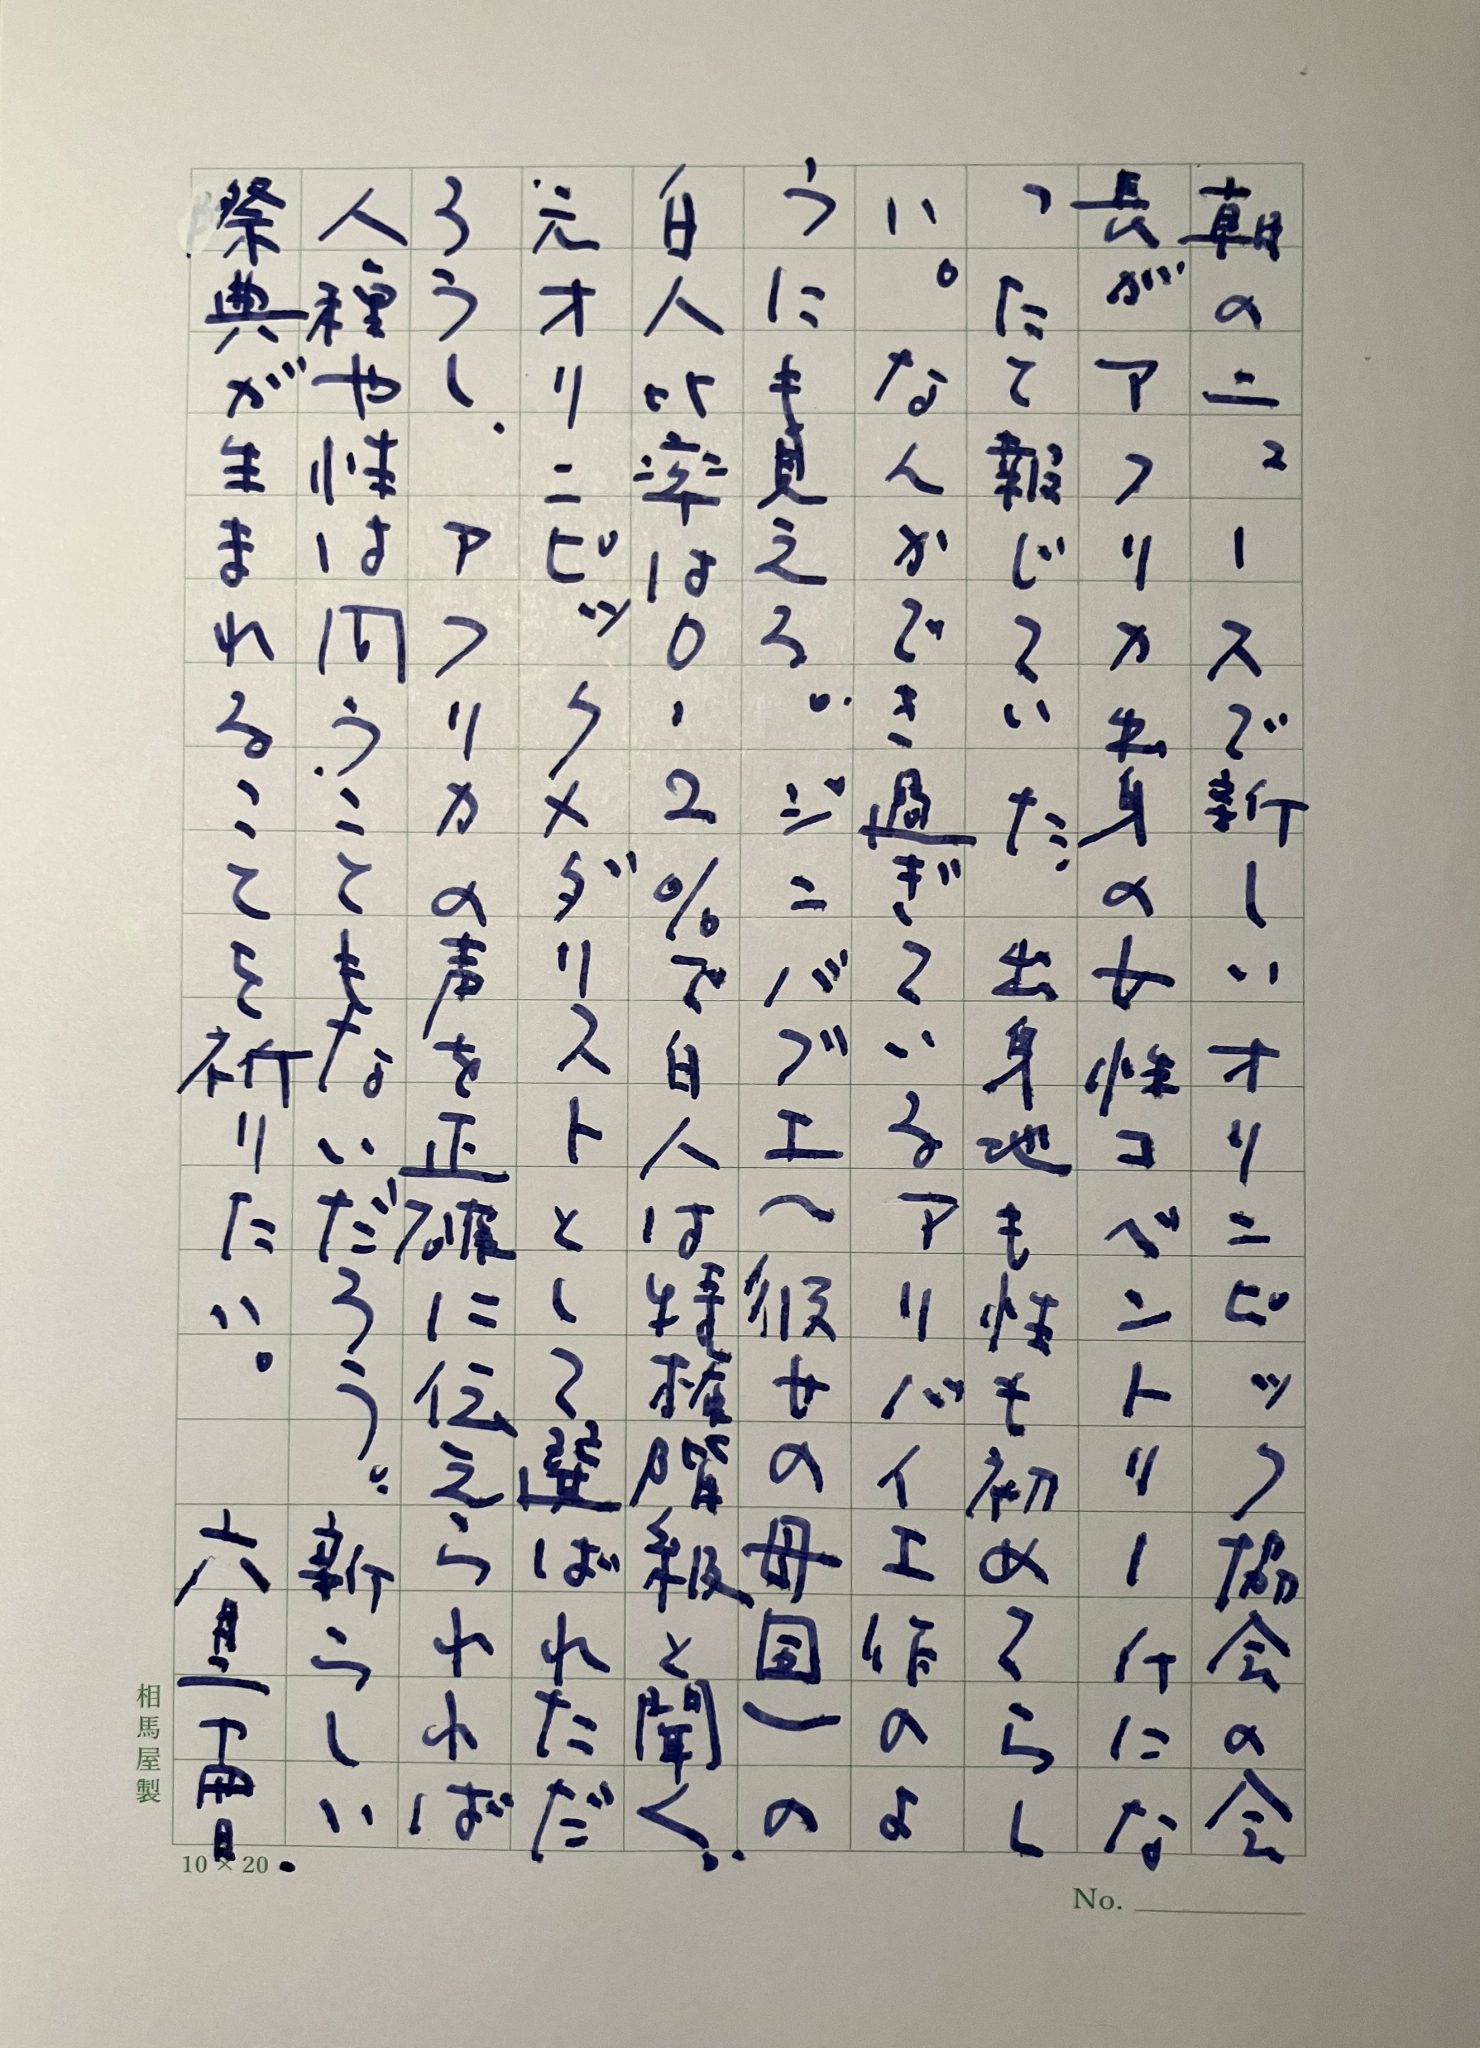 朝のニュースで新しいオリンピック協会の会
長がアフリカ出身の女性コベントリー氏にな
ったと報じていた。出身地も性も初めてらし
い。なんかでき過ぎているアリバイ工作のよ
うにも見える。ジンバブエ（彼女の母国）の
白人比率は0.2%で白人は特権階級と聞く。
元オリンピックメダリストとして選ばれただ
ろうし、アフリカの声を正確に伝えられれば
人種や性は問うこともないだろう。新らしい
祭典が生まれることを祈りたい。
相馬屋製
10×20
No.